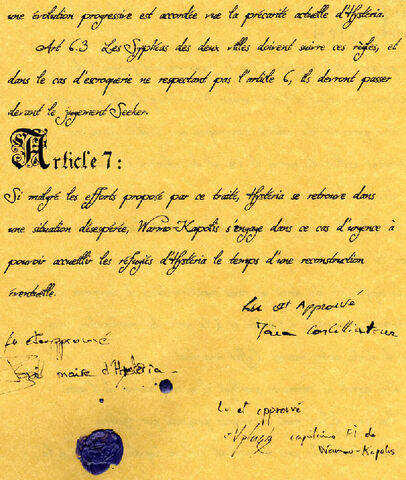 une évolution progressive est accordée vue la précarité actuelle d'Hysteria.
Art 6.3 Les Sypheas des deux villes doivent suivre ces règles, et
dans le cas d'escroquerie ne respectant pas l'article 6, ils devront passer
devant le jugement Seeker.
Article 7:
Si malgré les efforts proposé par ce traité, Hysteria se retrouve dans
une situation désespérée, Warmo-Kapolis s'engage dans ce cas d'urgence à
pouvoir accueillir les réfugiés d'Hysteria le temps d'une reconstruction
éventuelle.
Lu et Approuvé
Conciliateur
Lu et approuvé
maire d'Hysteria
Lu et approuvé
capitaine PI de
Warmo-Kapolis